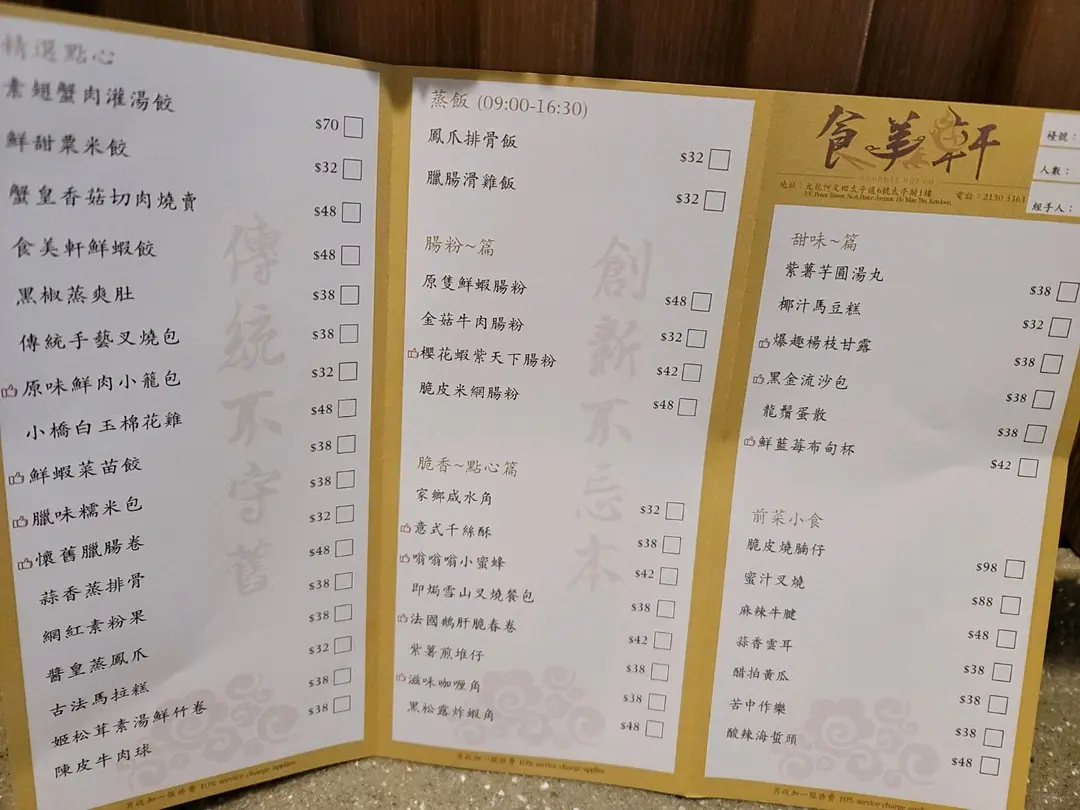 精選點心
素翅蟹肉灌湯餃 $70
鮮甜粟米餃 $32
蟹皇香菇切肉燒賣 $48
食美軒鮮蝦餃 $48
黑椒蒸爽肚 $38
傳統手藝叉燒包 $38
原味鮮肉小籠包 $32
小橋白玉棉花雞 $48
鮮蝦菜苗餃 $38
臘味糯米包 $38
懷舊臘腸卷 $32
蒜香蒸排骨 $48
網紅素粉果 $38
醬皇蒸鳳爪 $38
古法馬拉糕 $32
姬松茸素湯鮮竹卷 $38
陳皮牛肉球 $38
傳統不守舊
另收加一服務費 10% service charge applies
蒸飯 (09:00-16:30)
鳳爪排骨飯 $32
臘腸滑雞飯 $32
腸粉~篇
原隻鮮蝦腸粉 $48
金菇牛肉腸粉 $32
櫻花蝦紫天下腸粉 $42
脆皮米網腸粉 $48
脆香~點心篇
家鄉咸水角 $32
意式千絲酥 $38
嗡嗡嗡小蜜蜂 $42
即焗雪山叉燒餐包 $38
法國鵝肝脆春卷 $42
紫薯煎堆仔 $38
滋味咖喱角 $38
黑松露炸蝦角 $48
創新不忘本
另收加一服務費 10% service charge applies
食美軒
地址:九龍何文田太平道6號太平閣1樓
電話:2130 3363
檯號:
人數:
經手人:
甜味~篇
紫薯芋圓湯丸 $38
椰汁馬豆糕 $32
爆趣楊枝甘露 $38
黑金流沙包 $38
龍鬚蛋散 $38
鮮藍莓布甸杯 $42
前菜小食
脆皮燒腩仔 $98
蜜汁叉燒 $88
麻辣牛腱 $48
蒜香雲耳 $38
醋拍黃瓜 $38
苦中作樂 $38
酸辣海蜇頭 $48
另收加一服務費 10% service charge applies